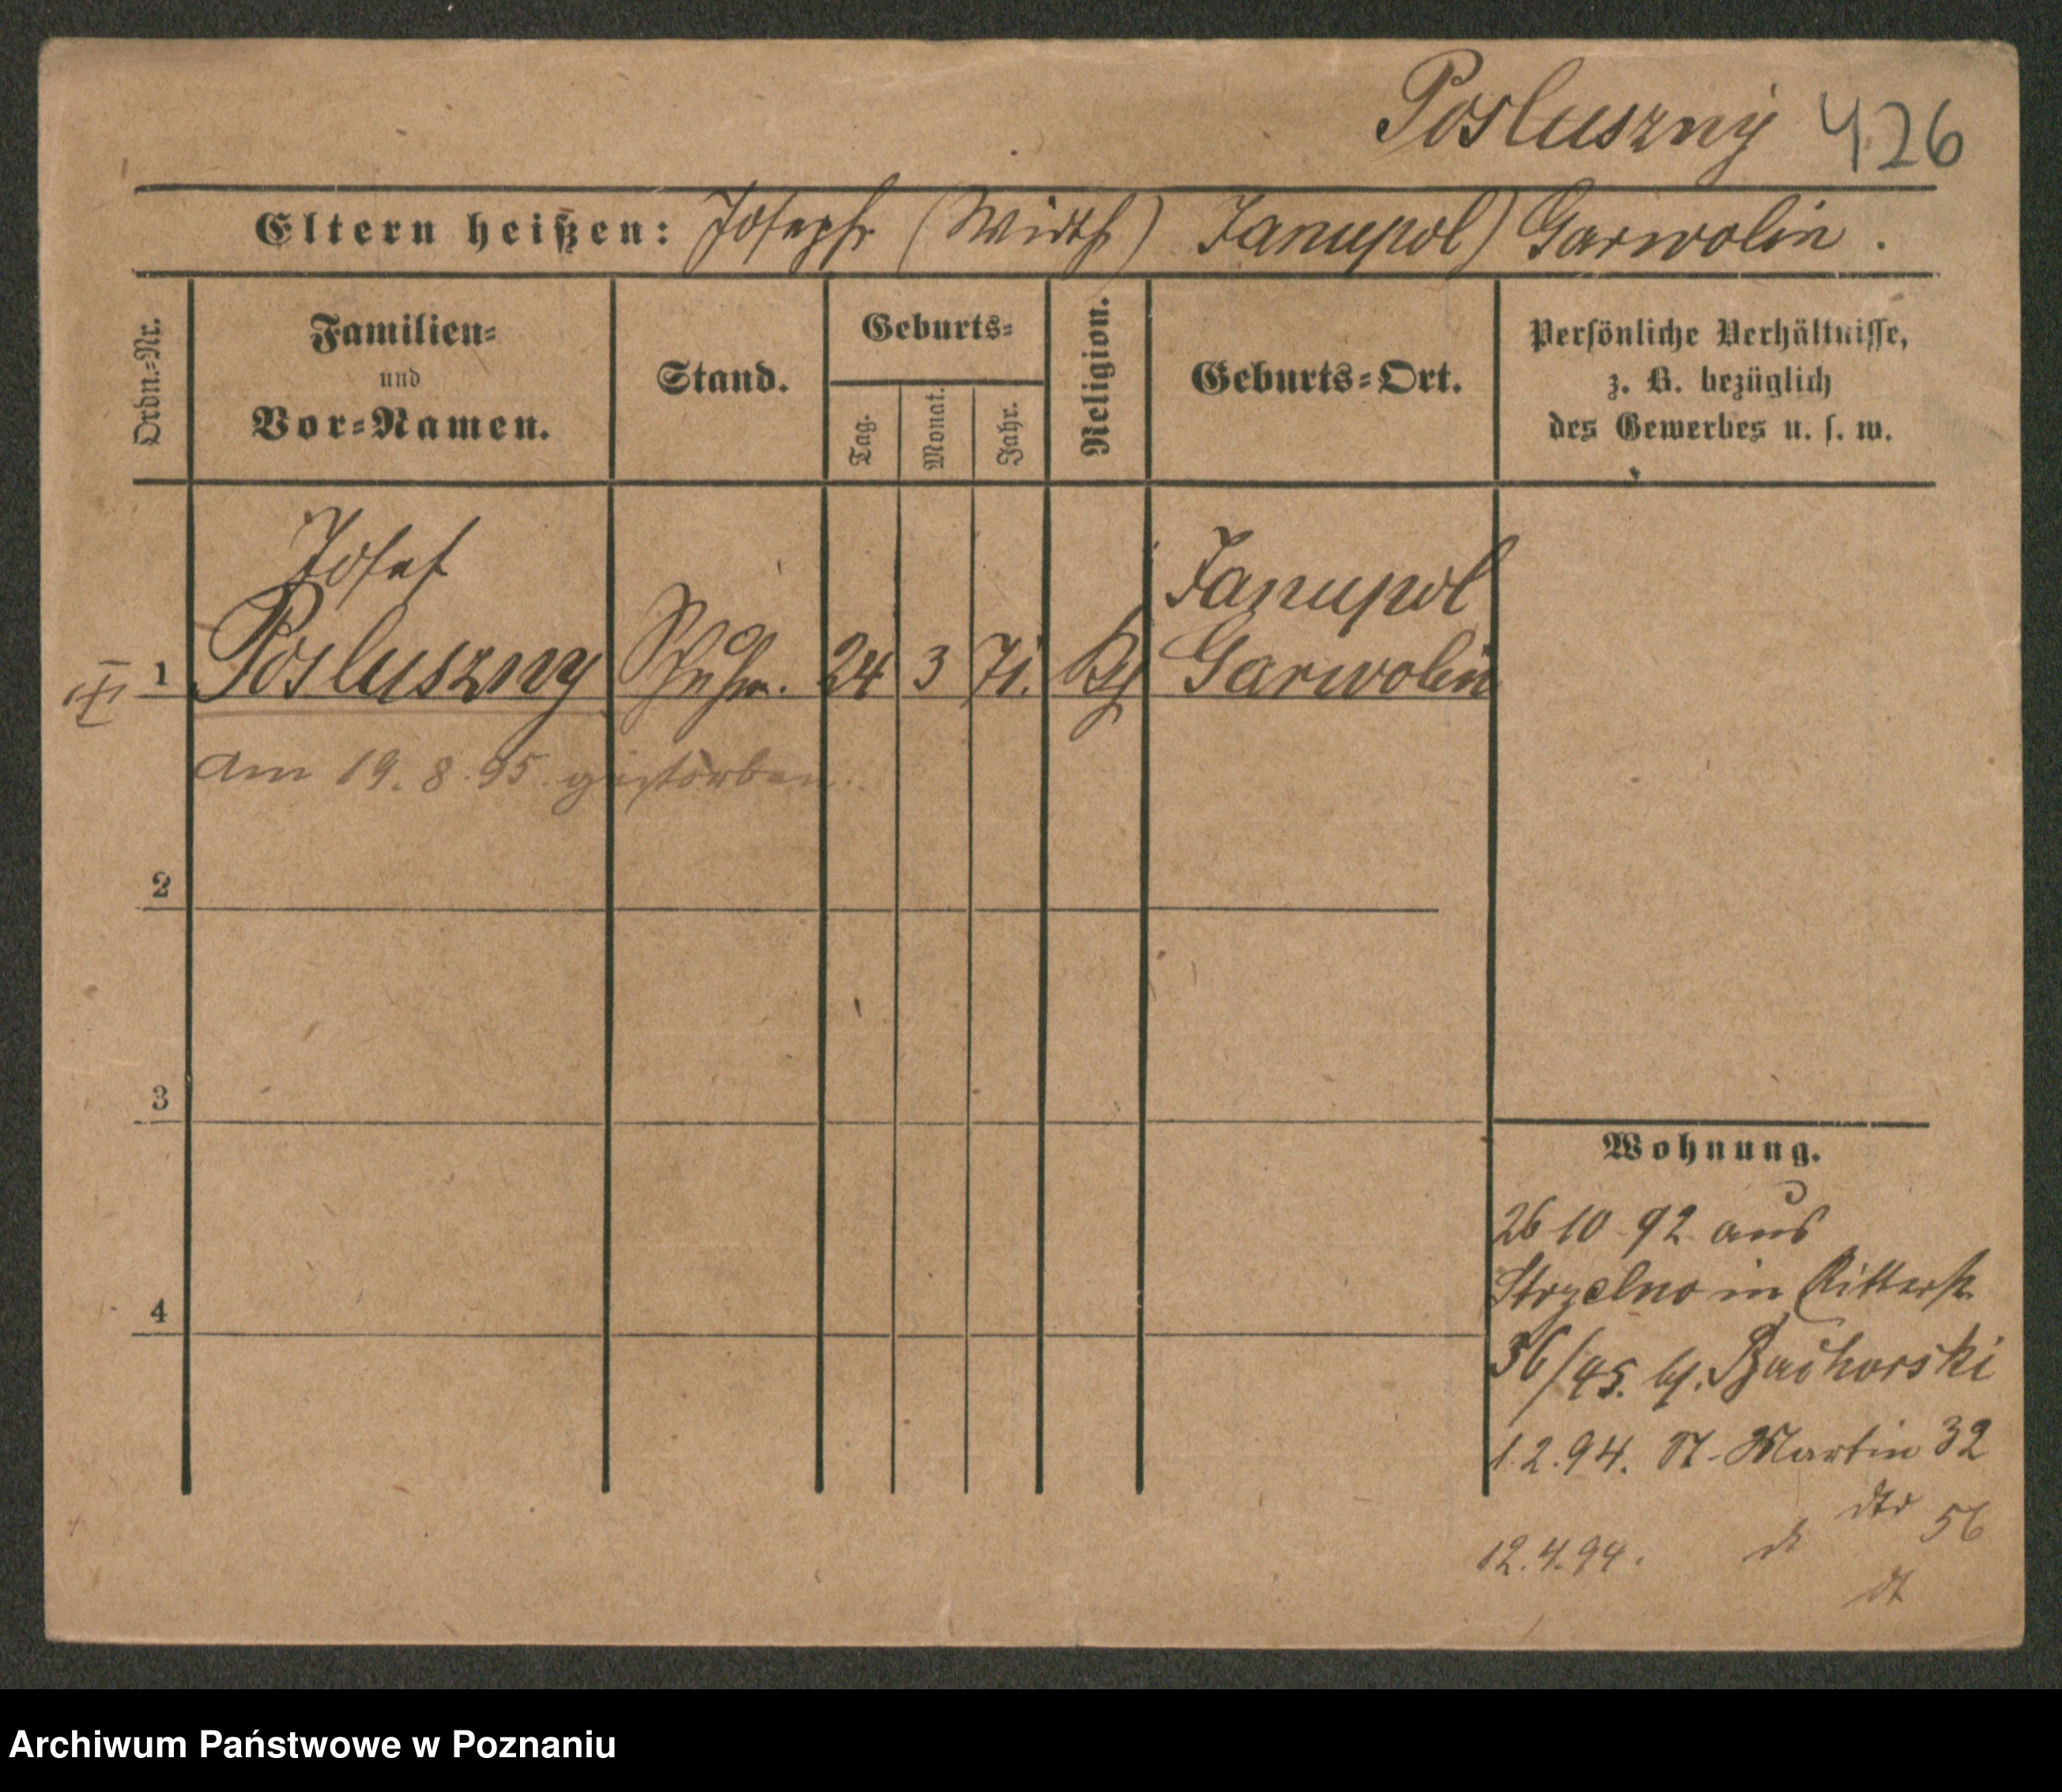 Posluszny 426
Eltern heißen: Joseph (Wirth) Janupol) Garwolin.
Ordn.-Nr.
Familien-
und
Vor-Namen.
Stand.
Geburts-
Tag.
Monat.
Jahr.
Religion.
Geburts-Ort.
Persönliche Verhältnisse,
z. B. bezüglich
des Gewerbes u. s. w.
Josef
Janupol
1 Posluszny Schuhm. 24 3 71. Kth Garwolin
Am 19.8.95. gestorben.
2
3
4
Wohnung.
26 10 92 aus
Strzelno in Ritterstr
36/45. bei Bachorski
1.2.94. St. Martin 32
dto 56
12.4.94. dt
dt
Archiwum Państwowe w Poznaniu